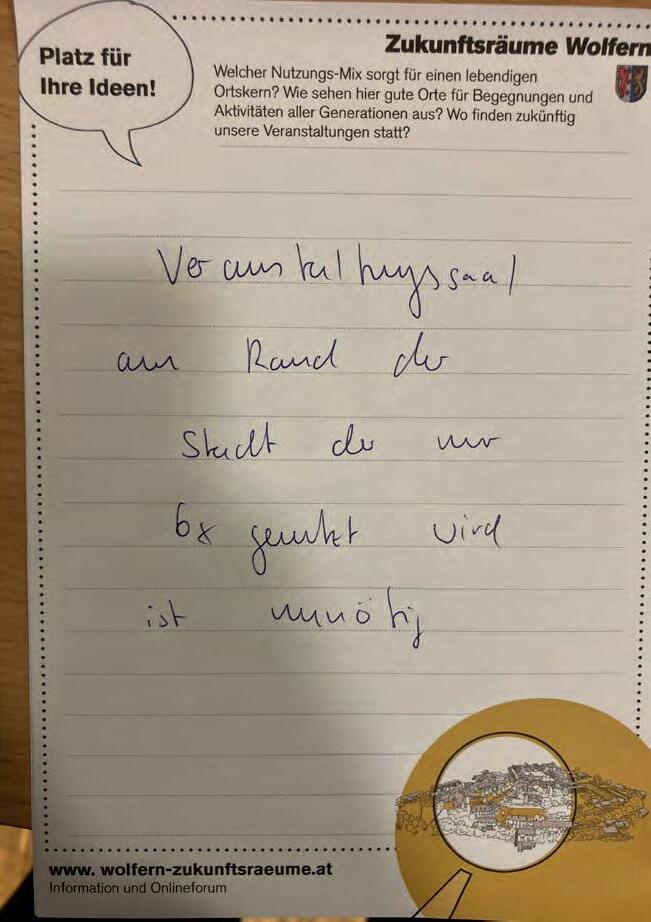 Platz für
Ihre Ideen!
Zukunftsräume Wolfern
Welcher Nutzungs-Mix sorgt für einen lebendigen
Ortskern? Wie sehen hier gute Orte für Begegnungen und
Aktivitäten aller Generationen aus? Wo finden zukünftig
unsere Veranstaltungen statt?
Veranstaltungssaal
am Rand der
Stadt der nur
6x genutzt wird
ist unnötig
www. wolfern-zukunftsraeume.at
Information und Onlineforum